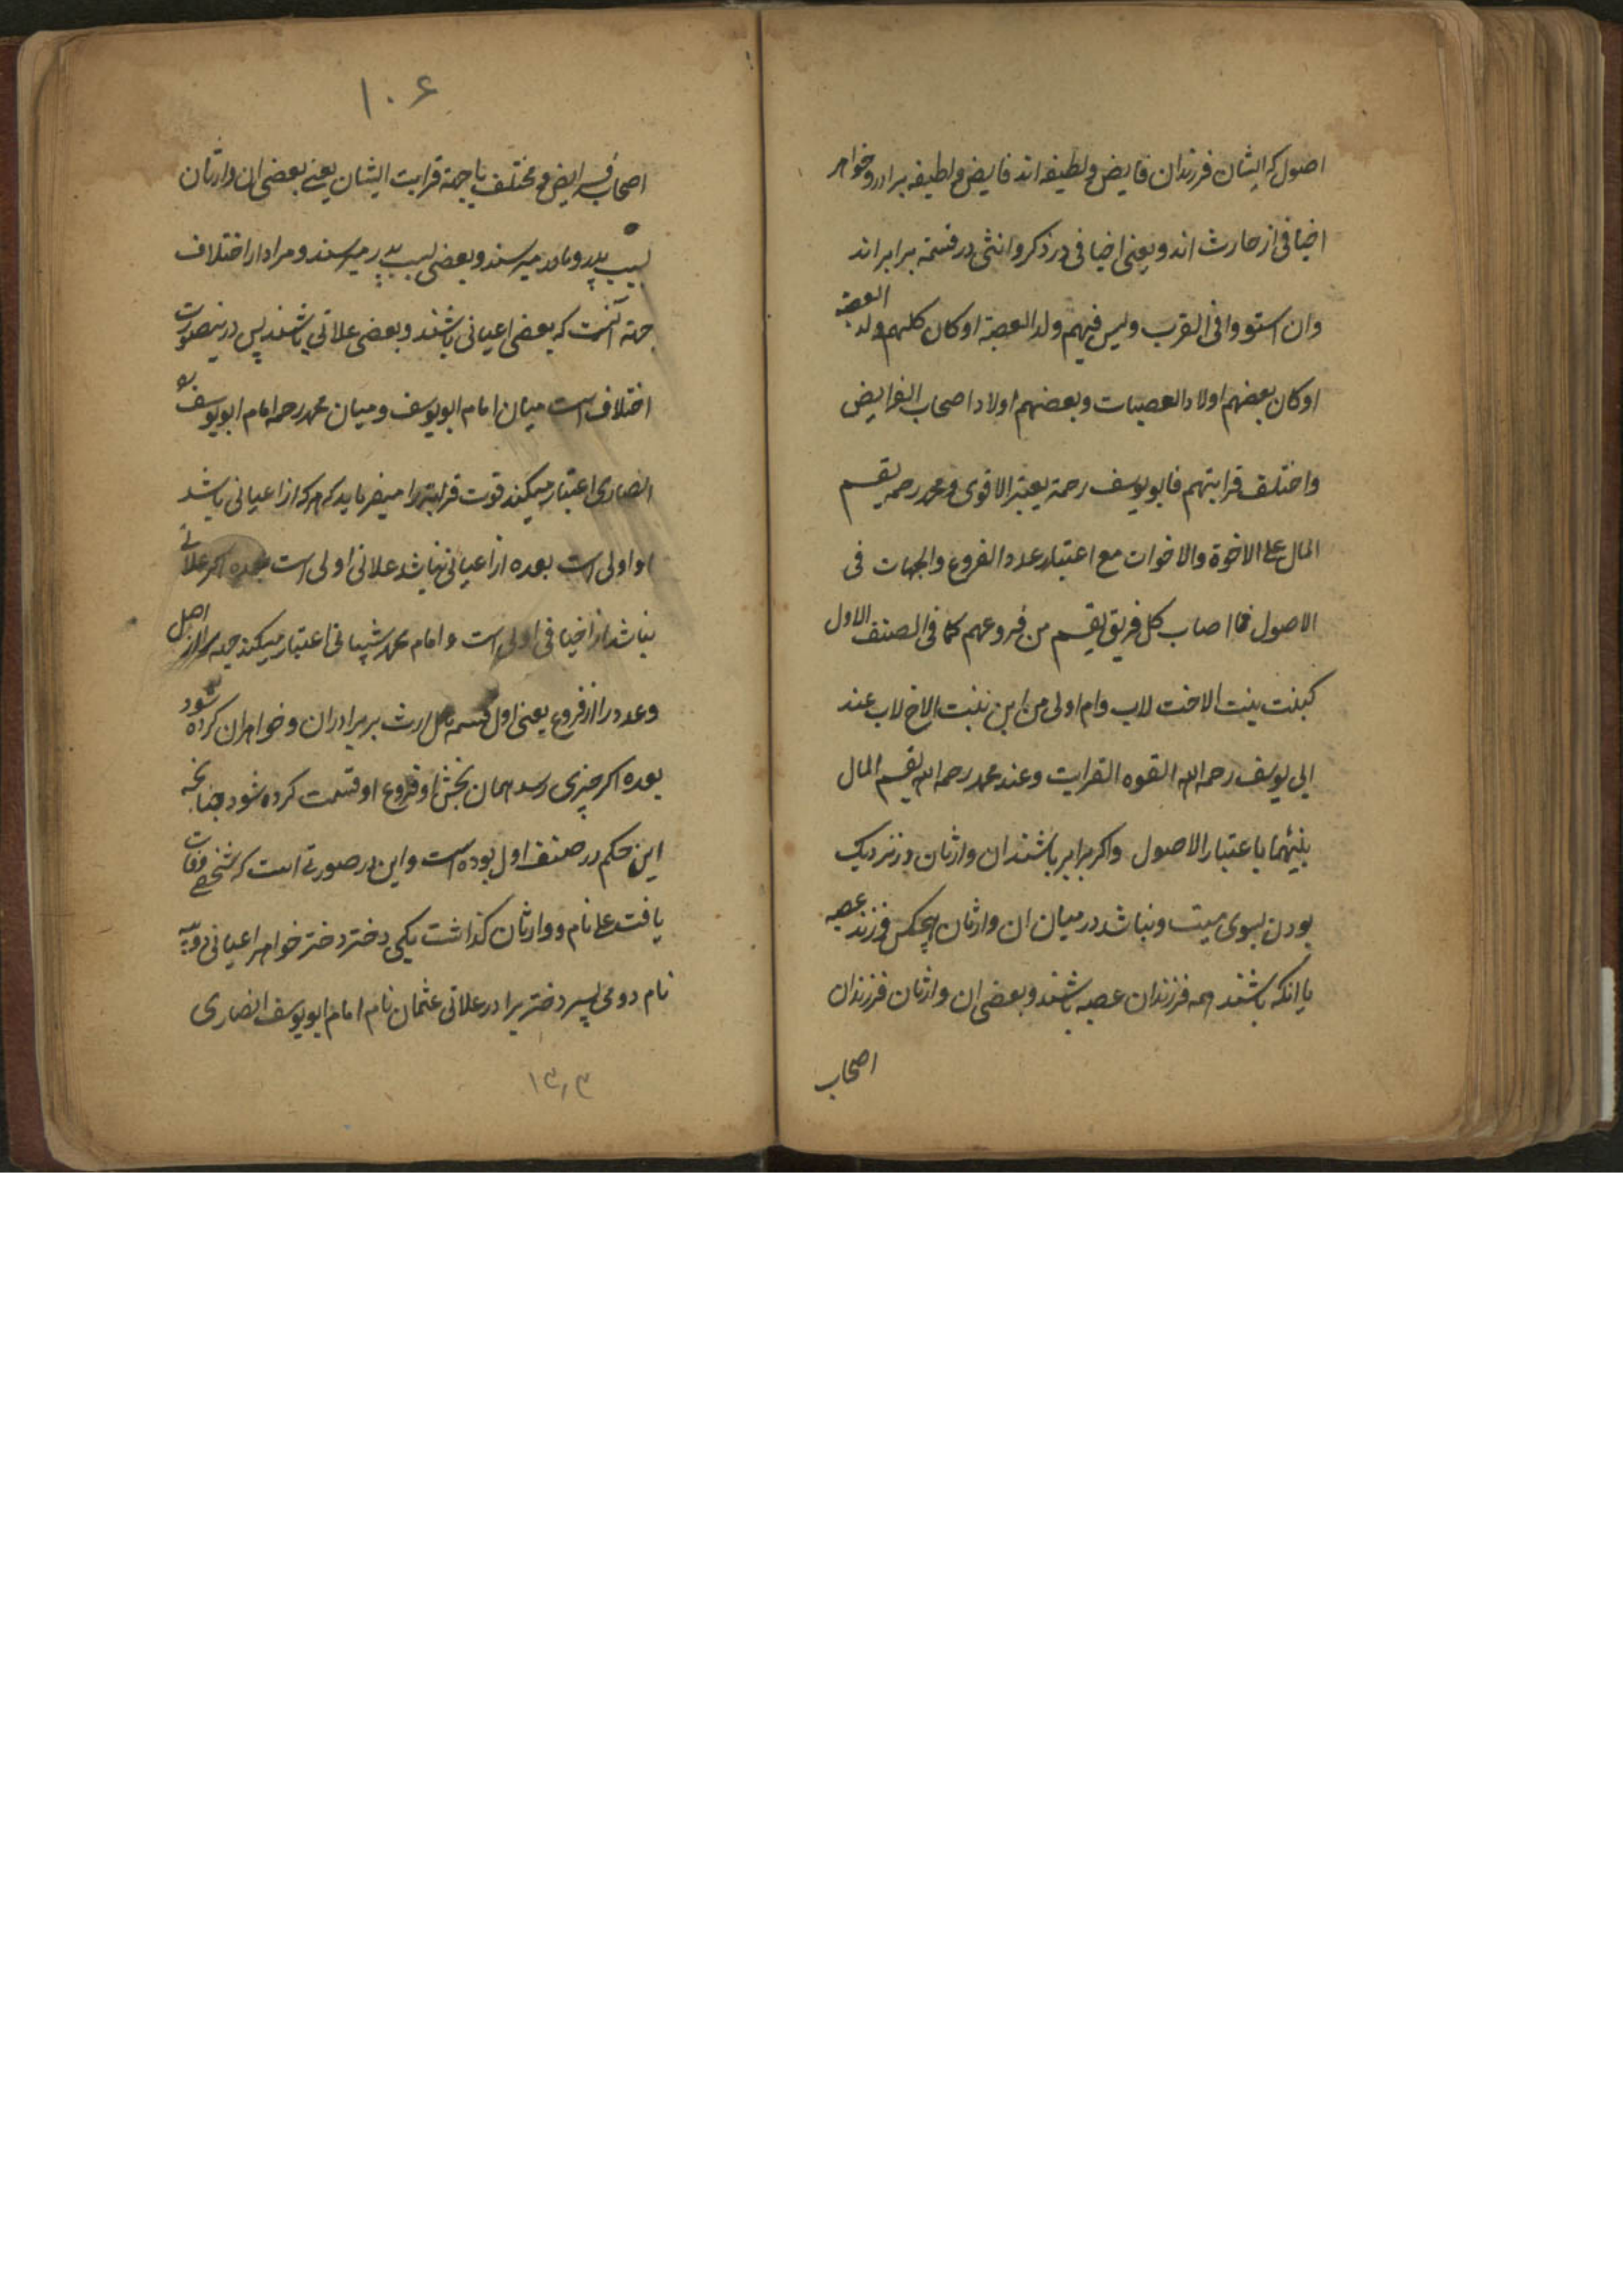 اصول که ایشان فرزندان فایض و لطیفه اند فایض و لطیفه برادر و خواهر
اخیافی از حارث اند و یعنی اخیافی در ذکر و انثی در قسمة برابر اند
وان استووا فی القرب ولیس فیهم ولد العصبة او کان کلهم ولد العصبة
او کان بعضهم اولاد العصبات وبعضهم اولاد اصحاب الفرایض
واختلف قرابتهم فابو یوسف رحمة یعتبر الاقوی ومحمد رحمه یقسم
المال علی الاخوة والاخوات مع اعتبار عدد الفروع والجهات فی
الاصول فما اصاب کل فریق یقسم من فروعهم کما فی الصنف الاول
کبنت بنت الاخت لاب وام اولی من ابن بنت الاخ لاب عند
ابی یوسف رحمه الله القوه القرابت وعند محمد رحمه الله یقسم المال
بینهما باعتبار الاصول واکر برابر باشند ان وارثان در نزدیک
بودن بسوی میت ونباشد در میان ان وارثان هیچکس فرزند عصبه
یا انکه باشند همه فرزندان عصبه باشند و بعضی ان وارثان فرزندان
اصحاب
۱۰۶
اصحاب فرایض و مختلف با جهة قرابت ایشان یعنے بعضی ان وارثان
بسبب پدر و مادر میرسند و بعضی بسبب پدر میرسند و مراد از اختلاف
جهة آنست که بعضی اعیانی باشند و بعضی علاتی باشند پس درینصورت
اختلاف است میان امام ابو یوسف و میان محمد رحمه امام ابو یوسف
انصاری اعتبار میکند قوت قرابة را میفرماید که هر که از اعیانی باشد
او اولی است بعده از اعیانی نباشد علاتی اولی است بعده اکر علاتے
نباشد از اخیافی اولی است و امام محمد شیبانی اعتبار میکند جهة را از اصل
و عدد را از فروع یعنی اول قسمه مال ارث بر برادران و خواهران کرده شود
بعده اکر چیزی رسد همان بخش او فروع او قسمت کرده شود چنانچه
این حکم در صنف اول بوده است و این در صورتے است که شخصے وفات
یافت علی نام و وارثان کذاشت یکی دختر دختر خواهر اعیانی
نام دومی پسر دختر برادر علاتی عثمان نام امام ابو یوسف انصاری